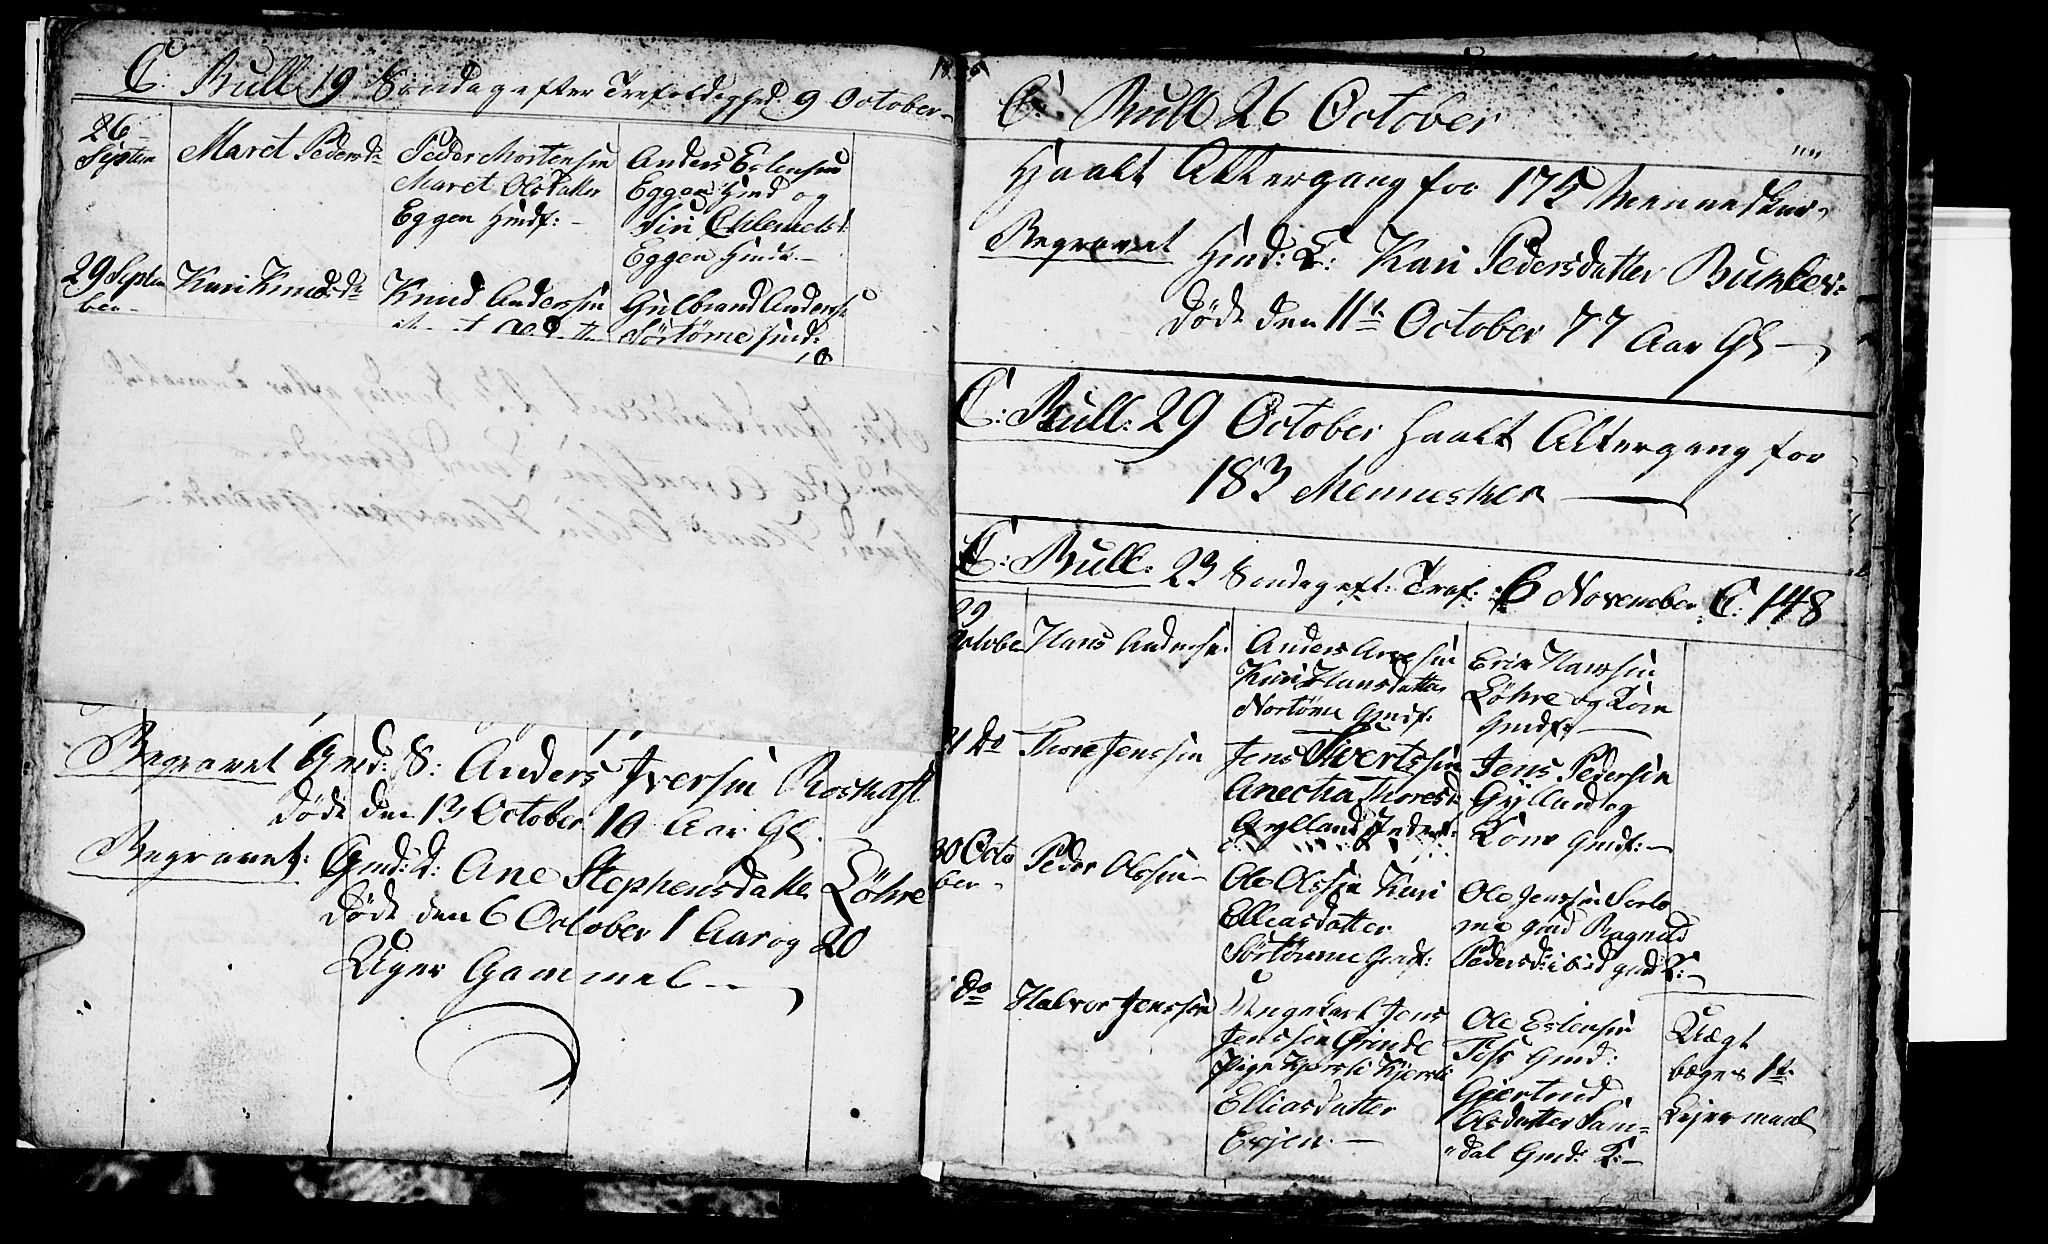 C: Bull 19 Søndag efter Trefoldighed 9 October
26
Septem
Maret Pedersdr
Peder Mortensøn
Maret Olsdatter
Eggen Hmdf:
Anders Estensøn
Eggen Hmd og
Siri
Eggen Hmds.
29 Septem
ber
Kari Knudsdr
Knud Andersøn
Gulbrand Anders
Sørtømme Hmd:
Begravet Gmd: S: Anders Iversøn Roskaft
døde den 13 October 10 Aar Gl.
Begravet: Gmd: d: Ane Stephensdatter Løhre
døde den 6 October 1 Aar og 20
Uger Gammel
C: Bull 26 October
Haalt Altergang for 175 Mennesker
Begravet Hmd: E: Kari Pedersdatter Bunker:
døde den 11t October 77 Aar Gl
C: Bull: 29 October haalt Altergang for
183 Mennesker
C: Bull: 23 Søndag eft: Tref: 6 November C: 148
29
Octobe
Hans Andersøn
Anders
Kari Hansdatter
Nortømme Gmdf:
Erik Hansøn
Løhre og Kone
Gmdf:
31 do
Thore Jenssøn
Jens Sivertssøn
Anectha Thoresd:
Gylland Inderf:
Jens Pedersøn
Gylland og
Kone Gmdf:
30 Octo
ber
Peder Olssøn
Ole Olssøn Kari
Elliasdatter
Sørtømme Gmdf:
Ole Jenssøn Sørtø
me gmd Ragnild
Pedersd: ibid gmd K:
do
Halvor Jenssøn
Ungekarl Jens
Jenssøn Grinde
Pige Kjersti
Elliasdatter
Evjen.
Ole Estensøn
Foss Gmd:
Gjertrud
Olsdatter Sam=
dal Gmd: K:
Uægt
begges 1t
Lejermaal